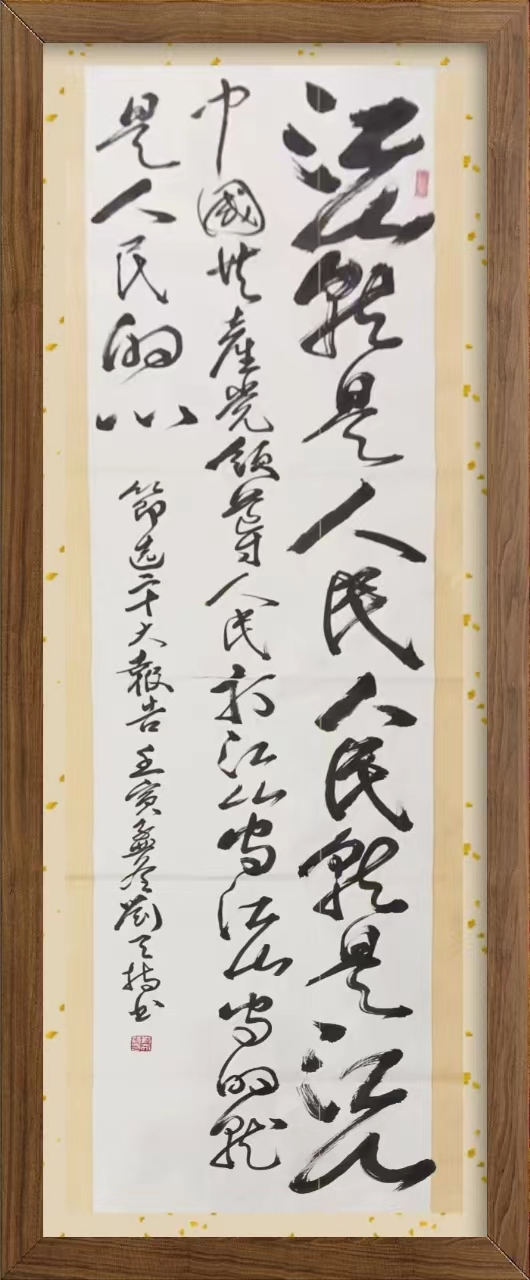 江山就是人民人民就是江山
中國共產党领導人民打江山守江山守的就
是人民的心
節选二十大報告壬寅孟冬劉天书